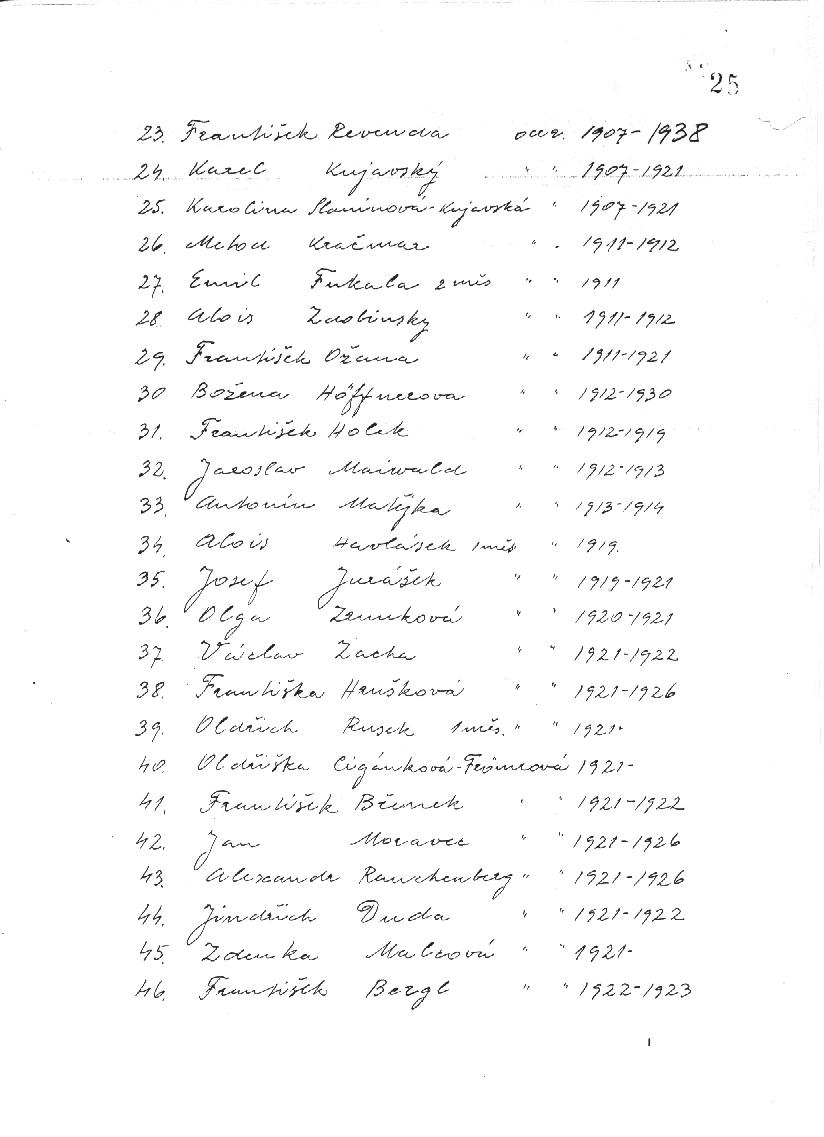 25
23. František Revenda 1907-1938
24. Karel Kujavský " " 1907-1921
25. Karolina Slaninová-Kujavská " 1907-1921
26. Metod Kračmar " . 1911-1912
27. Emil Fukala 2 měs " " 1911
28 Alois Zaobinsky " " 1911-1912
29. František Ožana " " 1911-1921
30 Božena Höffnerova " " 1912-1930
31. František Holek " " 1912-1919
32. Jaroslav Maiwald " " 1912-1913
33. Antonín Matýka " " 1913-1914
34. Alois Havlásek 1 měs " 1919.
35. Josef Jurášek " " 1919-1921
36. Olga Zemková " " 1920-1921
37. Václav Zacha " " 1921-1922
38. Františka Hrušková " " 1921-1926
39. Oldřich Rusek 1 měs. " " 1921-
40. Oldřiška 1921-
41. František Břemek " " 1921-1922
42. Jan Moravec " " 1921-1926
43. Alexandr Rauchenberg " " 1921-1926
44. Jindřich Duda " " 1921-1922
45. Zdenka " " 1921-
46. František Bergl " " 1922-1923